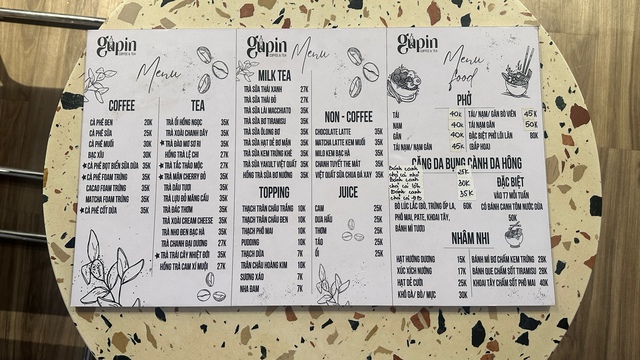 gupin
COFFEE & TEA
Menu
COFFEE
CÀ PHÊ ĐEN 20K
CÀ PHÊ SỮA 25K
CÀ PHÊ MUỐI 30K
BẠC XỈU 30K
CÀ PHÊ BỌT BIỂN SỮA DỪA 35K
CÀ PHÊ FOAM TRỨNG 35K
CACAO FOAM TRỨNG 35K
MATCHA FOAM TRỨNG 35K
CÀ PHÊ CỐT DỪA 35K
TEA
TRÀ ỔI HỒNG NGỌC 35K
TRÀ XOÀI CHANH DÂY 35K
TRÀ ĐÀO MƠ SO RI 35K
HỒNG TRÀ LỆ CHI 27K
TRÀ TẮC THẢO MỘC 27K
TRÀ MẬN CHERRY ĐỎ 35K
TRÀ DÂU TƯƠI 35K
TRÀ LỰU ĐỎ MÃNG CẦU 35K
TRÀ ĐÁC THƠM 35K
TRÀ XOÀI CREAM CHEESE 35K
TRÀ NHO ĐEN BẠC HÀ 35K
TRÀ CHANH ĐẠI DƯƠNG 27K
TRÀ TRÁI CÂY NHIỆT ĐỚI 35K
HỒNG TRÀ CAM XÍ MUỘI 27K
gupin
COFFEE & TEA
Menu
MILK TEA
TRÀ SỮA THÁI XANH 27K
TRÀ SỮA THÁI ĐỎ 27K
TRÀ SỮA LÀI MACCHIATO 35K
TRÀ SỮA BƠ TIRAMISU 35K
TRÀ SỮA ÔLONG BƠ 35K
TRÀ SỮA HẠT DẺ BƠ MẶN 35K
TRÀ SỮA KEM TRỨNG KHÈ 35K
TRÀ SỮA YAKULT VIỆT QUẤT 35K
HỒNG TRÀ SỮA BƠ NƯỚNG 35K
TOPPING
THẠCH TRÂN CHÂU TRẮNG 10K
THẠCH TRÂN CHÂU ĐEN 10K
THẠCH PHÔ MAI 10K
PUDDING 10K
THẠCH DỪA 7K
TRÂN CHÂU HOÀNG KIM 10K
SƯƠNG SÁO 7K
NHA ĐAM 7K
NON - COFFEE
CHOCOLATE LATTE 35K
MATCHA LATTE KEM MUỐI 35K
MILO KEM BẠC HÀ 35K
CHANH TUYẾT THE MÁT 35K
VIỆT QUẤT SỮA CHUA ĐÁ XAY 35K
JUICE
CAM 35K
DƯA HẤU 35K
THƠM 35K
TÁO 35K
ỔI 35K
gupin
COFFEE & TEA
Menu
food
PHỞ
TÁI 40K
NẠM 40K
GÂN 40K
TÁI/ NẠM/ GÂN 45K
TÁI/ NẠM/ GÂN BÒ VIÊN 45K
TÁI NẠM GÂN 50K
ĐẶC BIỆT PHỞ LỚI LĂN 80K
(BẮP HOA)
CĂNG DA BỤNG CÀNH DA HÔNG
Bánh canh
chả cá nhỏ 25K
Bánh canh
chả cá lớn 30K
Bánh canh
35K
BÒ LÚC LẮC (BÒ, TRỨNG ỐP LA, 60K
PHÔ MAI, PATE, KHOAI TÂY,
BÁNH MÌ TƯƠI)
ĐẶC BIỆT
VÀO T7 MỖI TUẦN
CÓ BÁNH CANH TÔM NƯỚC DỪA
50K
NHÂM NHI
HẠT HƯỚNG DƯƠNG 15K
XÚC XÍCH NƯỚNG 17K
HẠT DẺ CƯỜI 25K
KHÔ GÀ/ BÒ/ MỰC 30K
BÁNH MÌ BƠ CHẤM KEM 28K
BÁNH QUE CHẤM SỐT TIRAMISU 28K
KHOAI TÂY CHẤM SỐT PHÔ MAI 40K